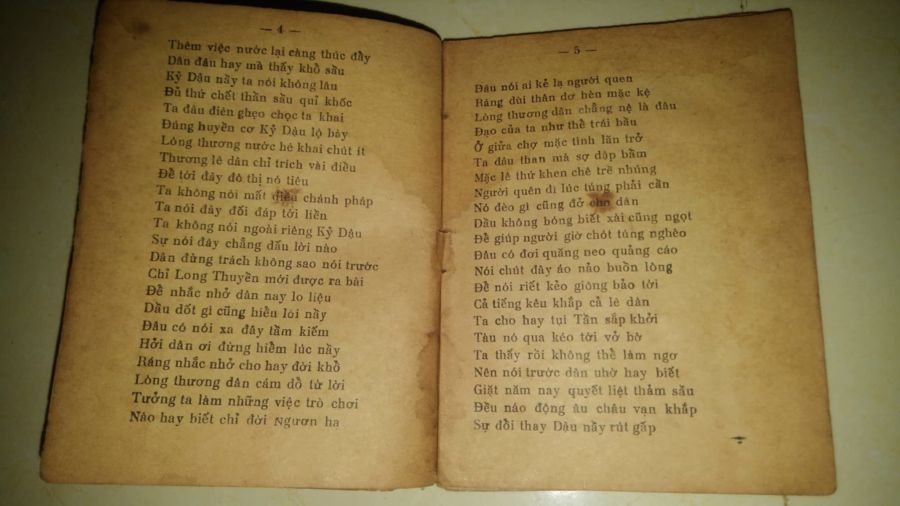 — 4 —
Thêm việc nước lại càng thúc đẩy
Dân đâu hay mà thấy khổ sầu
Kỷ Dậu nầy ta nói không lâu
Đủ thứ chết thần sầu quỉ khốc
Ta đâu điên ghẹo chọc ta khai
Đúng huyền cơ Kỷ Dậu lộ bày
Lòng thương nước hé khai chút ít
Thương lê dân chỉ trích vài điều
Để tới đây đô thị nó tiêu
Ta không nói mất điều chánh pháp
Ta nói đây đối đáp tới liền
Ta không nói ngoài riêng Kỷ Dậu
Sự nói đây chẳng dấu lời nào
Dân đừng trách không sao nói trước
Chỉ Long Thuyền mới được ra bài
Để nhắc nhở dân nay lo liệu
Dầu dốt gì cũng hiểu lời nầy
Đâu có nói xa đây tầm kiếm
Hởi dân ơi đừng hiềm lúc nầy
Ráng nhắc nhở cho hay đời khổ
Lòng thương dân cám dổ từ lời
Tưởng ta làm những việc trò chơi
Nào hay biết chỉ đời Ngươn hạ
— 5 —
Đâu nói ai kẻ lạ người quen
Ráng dùi thân dơ hèn mặc kệ
Lòng thương dân chẳng nệ là đâu
Đạo của ta như thể trái bầu
Ở giữa chợ mặc tình lăn trở
Ta đâu than mà sợ dập bầm
Mặc lê thứ khen chê trề nhúng
Người quên đi lúc túng phải cần
Nó đèo gì cũng đở cho dân
Dầu không bóng biết xài cũng ngọt
Để giúp người giờ chót túng nghèo
Đâu có đợi quăng neo quảng cáo
Nói chút đây áo nảo buồn lòng
Để nói riết kẻo giông bảo tới
Cả tiếng kêu khắp cả lê dân
Ta cho hay tụi Tần sắp khởi
Tàu nó qua kéo tới vở bờ
Ta thấy rồi không thể làm ngơ
Nên nói trước dân nhờ hay biết
Giặt năm nay quyết liệt thảm sầu
Đều náo động âu châu vạn khắp
Sự đổi thay Dậu nầy rút gấp